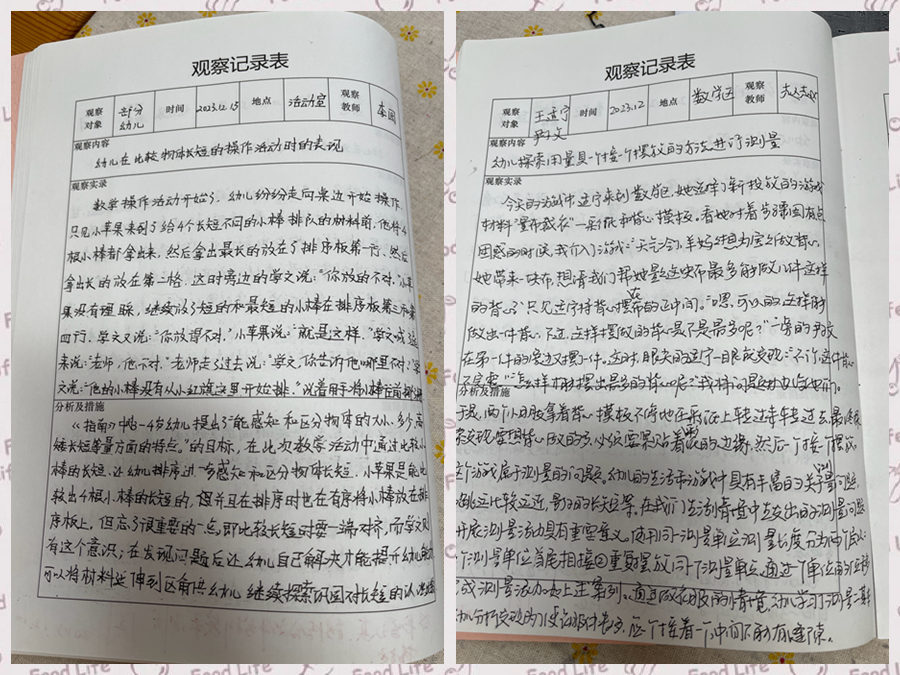 观察记录表
观察对象 部分幼儿 时间 2023.12.15 地点 活动室 观察教师 李闯
观察内容
幼儿在比较物体长短的操作活动时的表现
观察实录
数学操作活动开始了，幼儿纷纷走向桌边开始操作，
只见小苹果来到了给4个长短不同的小棒排队的材料前，他将4
根小棒都拿出来，然后拿出最长的放在了排序板第一行，然后
拿出长的放在第二格，这时旁边的学文说：“你放的不对。”小苹
果没有理睬，继续放了短的和最短的小棒在排序板第三和第
四行，学文又说：“你放得不对。”小苹果说：“就是这样。”学文
来说：“老师，他不对。”老师走了过去说：“学文，你告诉他哪里不对？”学
文说：“他的小棒没有从小红旗这里开始排。”说着用手将小棒往前
分析及措施
《指南》中3-4岁幼儿提出了“能感知和区分物体的大小、多少、高
矮长短等量方面的特点。”的目标，在此次数学活动中通过比较小
棒的长短，让幼儿排序进一步感知和区分物体长短，小苹果是能比
较出4根小棒的长短的，但并且在排序时也在有序将小棒放在排
序板上，但忘了很重要的一点，即比较长短时要一端对齐，而学文则
有这个意识；在发现问题后让幼儿自己解决才能提升幼儿
可以将材料延伸到区角供幼儿继续探索巩固对长短的认
观察记录表
观察对象 王适宁 尹文 时间 2023.12 地点 数学区 观察教师
观察内容
幼儿探索用量具一个接一个摆放的方法进行测量
观察实录
今天的游戏中适宁来到数学区，她选择了新投放的游戏
材料“量布裁衣”一彩纸和背心模板。看她对着步骤图有点
困惑的时候，我介入游戏：“天气冷了羊妈妈想为宝宝做背心，
她带来一块布，想请我们帮她量这块布最多能做几件这样
的背心？”只见适宁将背心摆在布的正中间。“嗯，可以的，这样能
做出一件背心，不过，这样摆放的背心是不是最多呢？”一旁的尹文
在第一件的旁边又摆一件，这时，眼尖的适宁一眼就发现：“不行，这件背心
不完整。”“怎样才能摆出最多的背心呢？”我将问题抛给她们。
于是，两个小朋友拿着背心模板不停地在彩纸上转过来转过去，最终
发现要想背心做的多，必须要紧贴着纸的边缘，然后一个接一个摆放。
分析及措施
这个游戏属于测量的问题，幼儿的生活和游戏中具有丰富的关于测量问题，
开展测量活动具有重要意义。使用同一测量单位测量长度分为两个
个测量单位首尾相接②重复摆放同一个测量单位，通过一个单位的位移
完成测量活动。通过做衣服的情境，幼儿学习测量，
每个接着一个，中间不能有缝隙。
Food Life
Food Life
Food Life